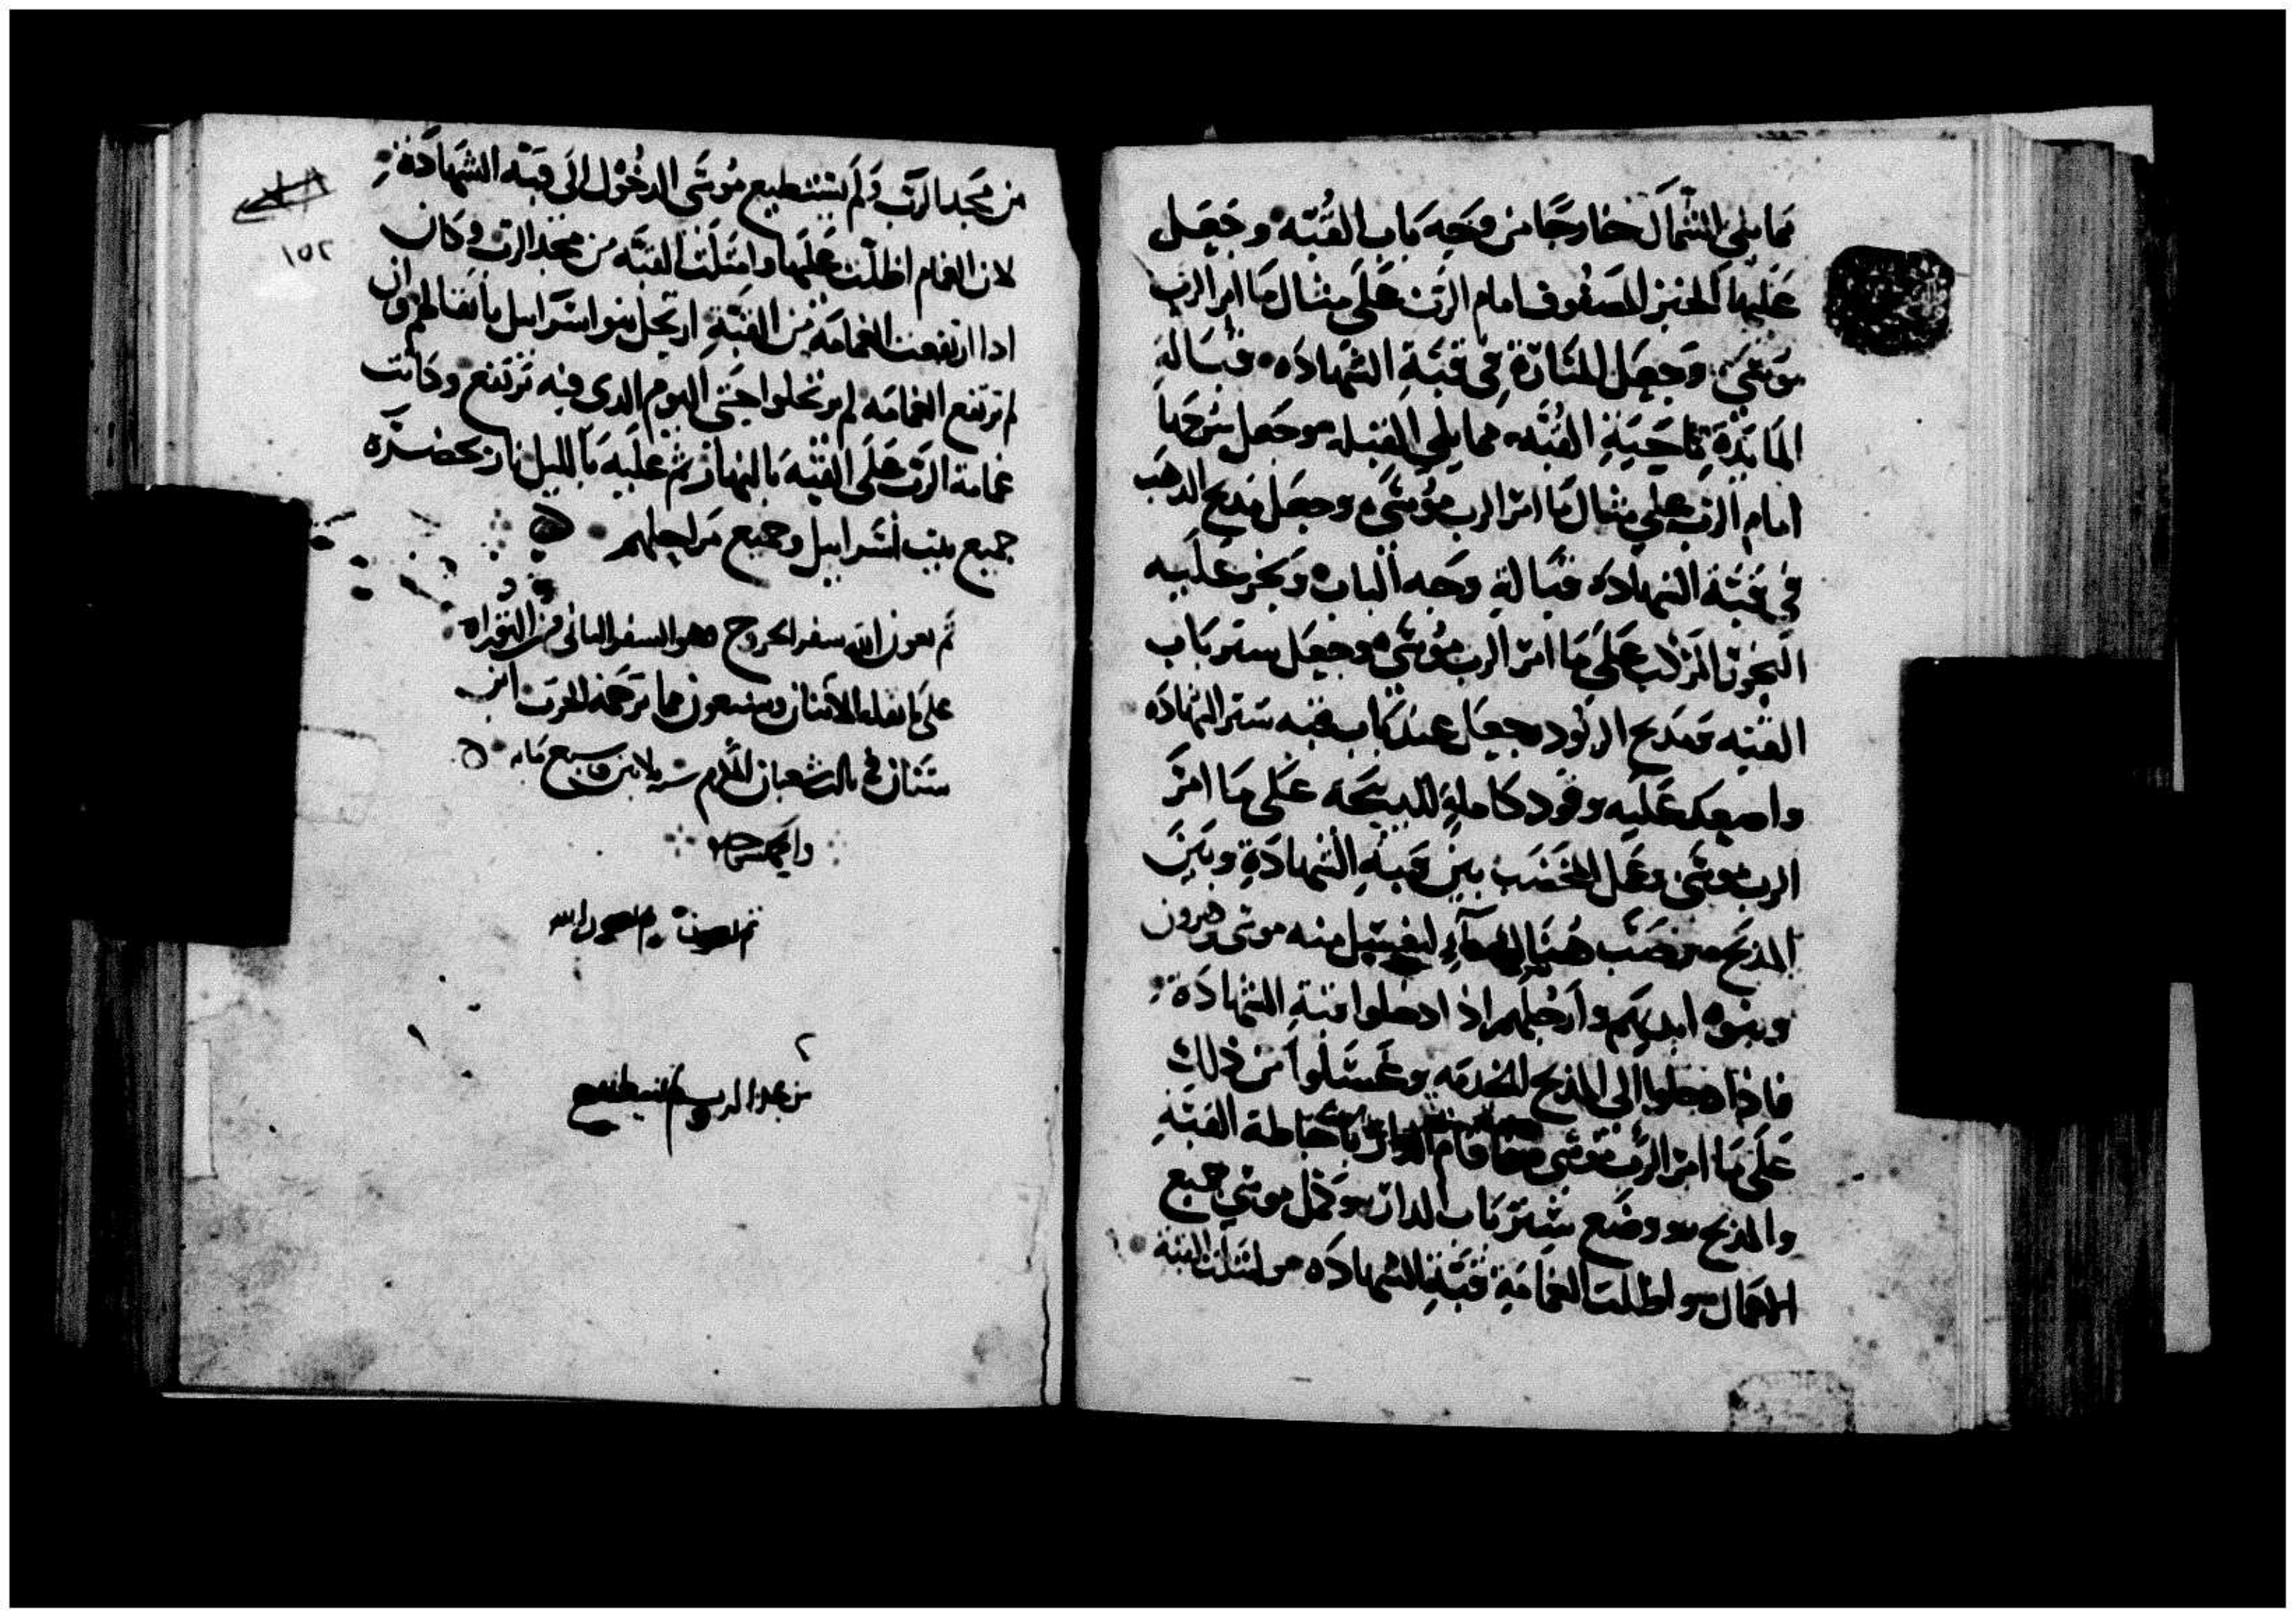 مما يلى الشمال خارجًا من وجه باب القبه وجعل
عليها الخبز المصفوف امام الرب على مثال ما امر الرب
موسى وجعل المنارة فى قبة الشهاده قبالة
المايدة ناحية القبه مما يلى القبله وجعل سرجها
امام الرب على مثال ما امر الرب موسى وجعل مدبح الدهب
فى قبة الشهاده قبالة وجه الباب وبخر عليه
البخور المركب على ما امر الرب موسى وجعل ستر باب
القبه ومدبح الوقود جعل عند باب قبه ستر الشهاده
واصعد عليه وقود كاملة للدبيحه على ما امر
الرب موسى وعمل المخضب بين قبة الشهادة وبين
المذبح وصب هناك الماء ليغتسل منه موسى وهرون
وبنوه ايديهم وارجلهم اذا دخلوا قبة الشهادة
فاذا دخلوا الى المذبح للخدمه وغسلوا من ذلك
على ما امر الرب موسى واقام الدار باحاطة القبة
والمذبح ووضع ستر باب الدار وكمل موسى جميع
الاعمال واظلت الغمامة قبة الشهاده وامتلت القبة
من مجد الرب ولم يستطيع موسى الدخول الى قبة الشهادة
١٥٢
لان الغمام اظلت عليها وامتلت القبة من مجد الرب وكان
ادا ارتفعت الغمامة من القبة ارتحل بنو اسراييل باثقالهم وان
لم ترتفع الغمامه لم يرتحلوا حتى اليوم الدى فيه ترتفع وكانت
غمامة الرب على القبة بالنهار ثم عليه بالليل نار بحضرة
جميع بيت اسراييل وجميع مراحلهم
تم بعون الله سفر الخروج وهو السفر الثانى من التوراه
على ما نقله الاثنان وسبعون مما ترجمه الحرث ابن
سنان فى ثالث شعبان المكرم سنة ثلاثين وسبع مايه
من مجد الرب ولم يستطيع